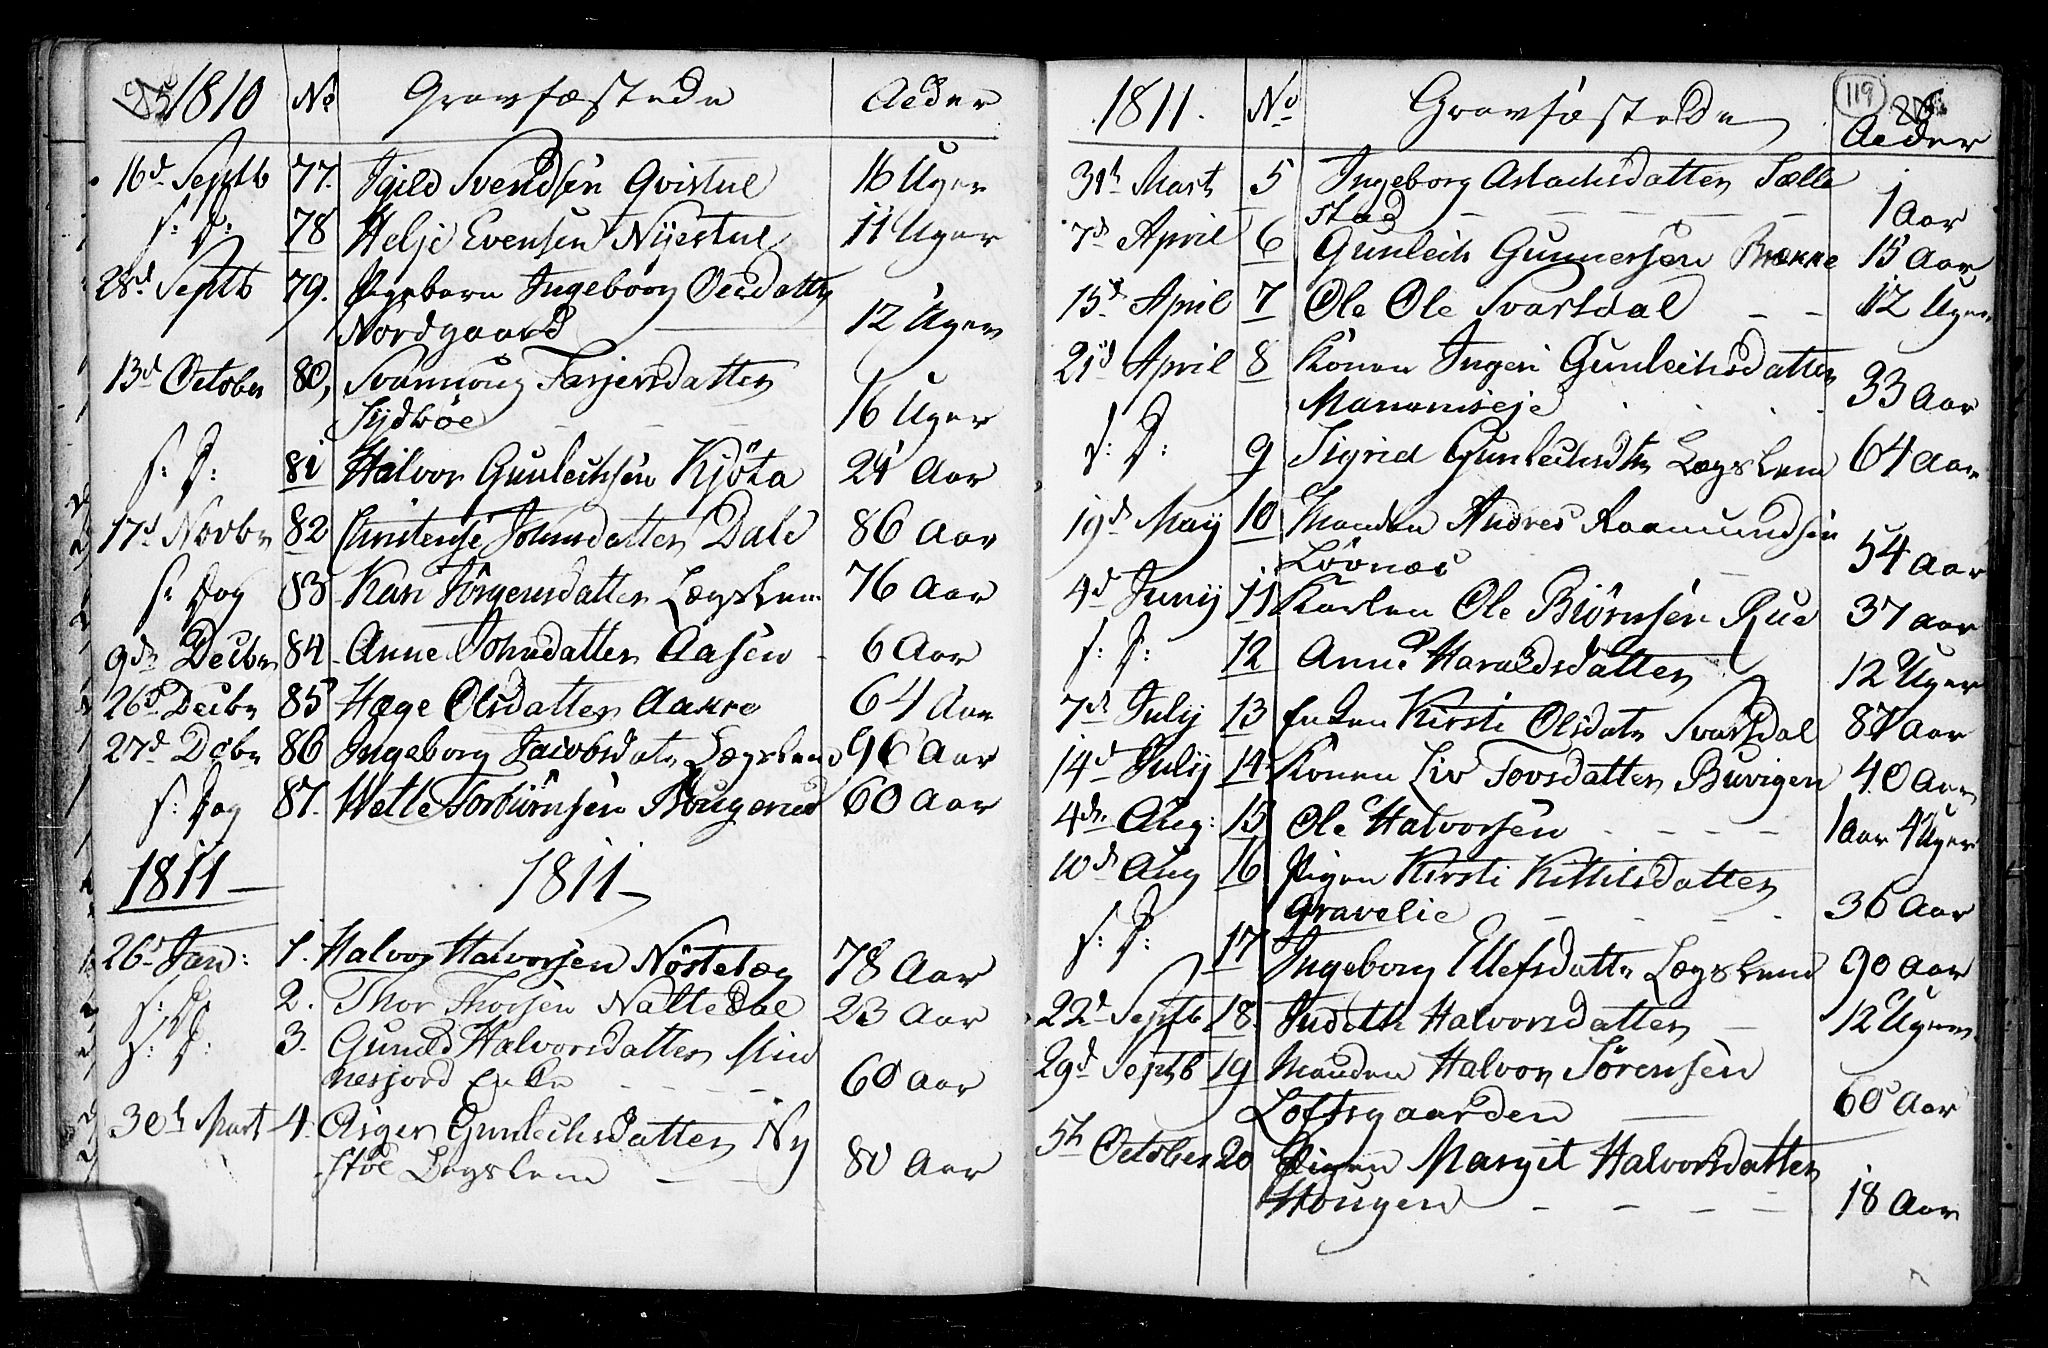 1810 No Gravfæstede Alder
16d Septb 77. Igild Svendsen Qvistul 16 Uger
s: D: 78 Helje Evensen Nyestul 11 Uger
28d Septb 79. Pigebarn Ingeborg Olsdatter
Nordgaard 12 Uger
13d October 80, Svannoug Tarjersdatter
Sydbøe 16 Uger
s: D: 81 Halvor Gunlechsen Kjøta 24 Aar
17d Novbr 82 Christense Johnsdatter Dale 86 Aar
s: Dag 83 Kari Jørgensdatter Lægslem 76 Aar
9de Decbr 84 Anne Johnsdatter Aasen 6 Aar
26d Decbr 85 Hæge Olsdatter Aakre 64 Aar
27d Debr 86 Ingeborg Jacobsdatr Lægslem 96 Aar
s: Dag 87. Wetle Torbiørnsen Hougerud 60 Aar
1811 — 1811 —
26d Jan: 1. Halvor Halvorsen Nøstelæg 78 Aar
s: D: 2. Thor Thorsen Natledal 23 Aar
s: D: 3. Gunild Halvorsdatter Min
nesjord Enke 60 Aar
30th Mart 4. Asger Gunlechsdatter Ny
støe Legslem 80 Aar
119
1811. No Gravfæstede Alder
31th Mart 5 Ingeborg Aslachsdatter Sælle
stad 1 Aar
7d April 6 Gunlech Gunnersen Brække 15 Aar
15d April 7 Ole Ole Svartdal 12 Uger
21d April 8 Konen Ingeri Gunlechsdatter
Manomseje 33 Aar
s: D: 9 Sigrid Gunlechsdtr Lægslem 64 Aar
19d May 10 Manden Andres Aamundsen
Löönæs 54 Aar
4d Juny 11 Karlen Ole Biørnsen Rue 37 aar
s: D: 12 Anne Haraldsdatter 12 Uger
7d July 13 Enken Kirsti Olsdatr Svartdal 87 Aar
14d July 14 Konen Liv Tovsdatter Buvigen 40 Aar
4de Aug: 15 Ole Halvorsen 1 aar 4 Uger
10d Aug 16 Pigen Kirsti Kittilsdatter
Gravelie 36 Aar
s: D: 17 Ingeborg Ellefsdatr Lægslem 90 Aar
22d Septb 18. Judith Halvorsdatter 12 Uger
29d Septb 19 Manden Halvor Sørensen
Loftsgaarden 60 Aar
5th October 20 Pigen Margit Halvorsdatter
Hougen 18 Aar